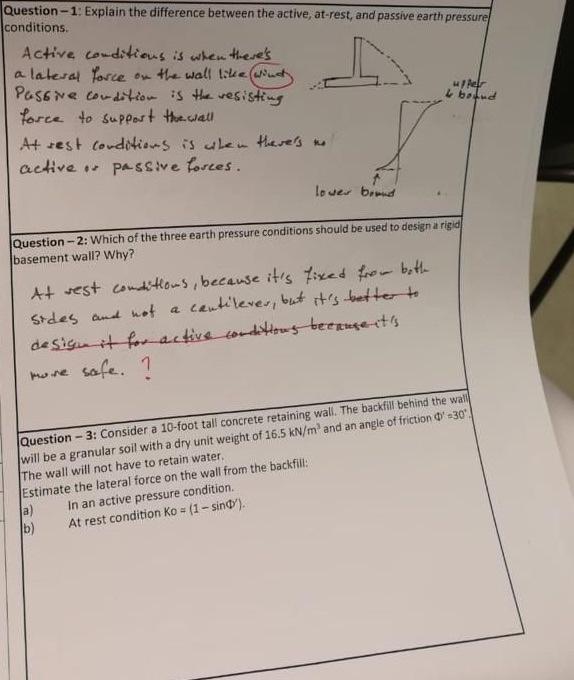 Question – 1: Explain the difference between the active, at-rest, and passive earth pressure
conditions.
Active conditions is when there's
a lateral force on the wall like wind
Passive condition is the resisting
force to support the wall
At rest conditions is when there's no
active or passive forces.
upper
bound
lower bound
Question – 2: Which of the three earth pressure conditions should be used to design a rigid
basement wall? Why?
At rest conditions, because it's fixed from both
sides and not a cantilever, but it's better to
design it for active conditions because it's
more safe. ?
Question – 3: Consider a 10-foot tall concrete retaining wall. The backfill behind the wall
will be a granular soil with a dry unit weight of 16.5 kN/m³ and an angle of friction Φ' =30°.
The wall will not have to retain water.
Estimate the lateral force on the wall from the backfill:
a) In an active pressure condition.
b) At rest condition Ko = (1 – sinΦ').